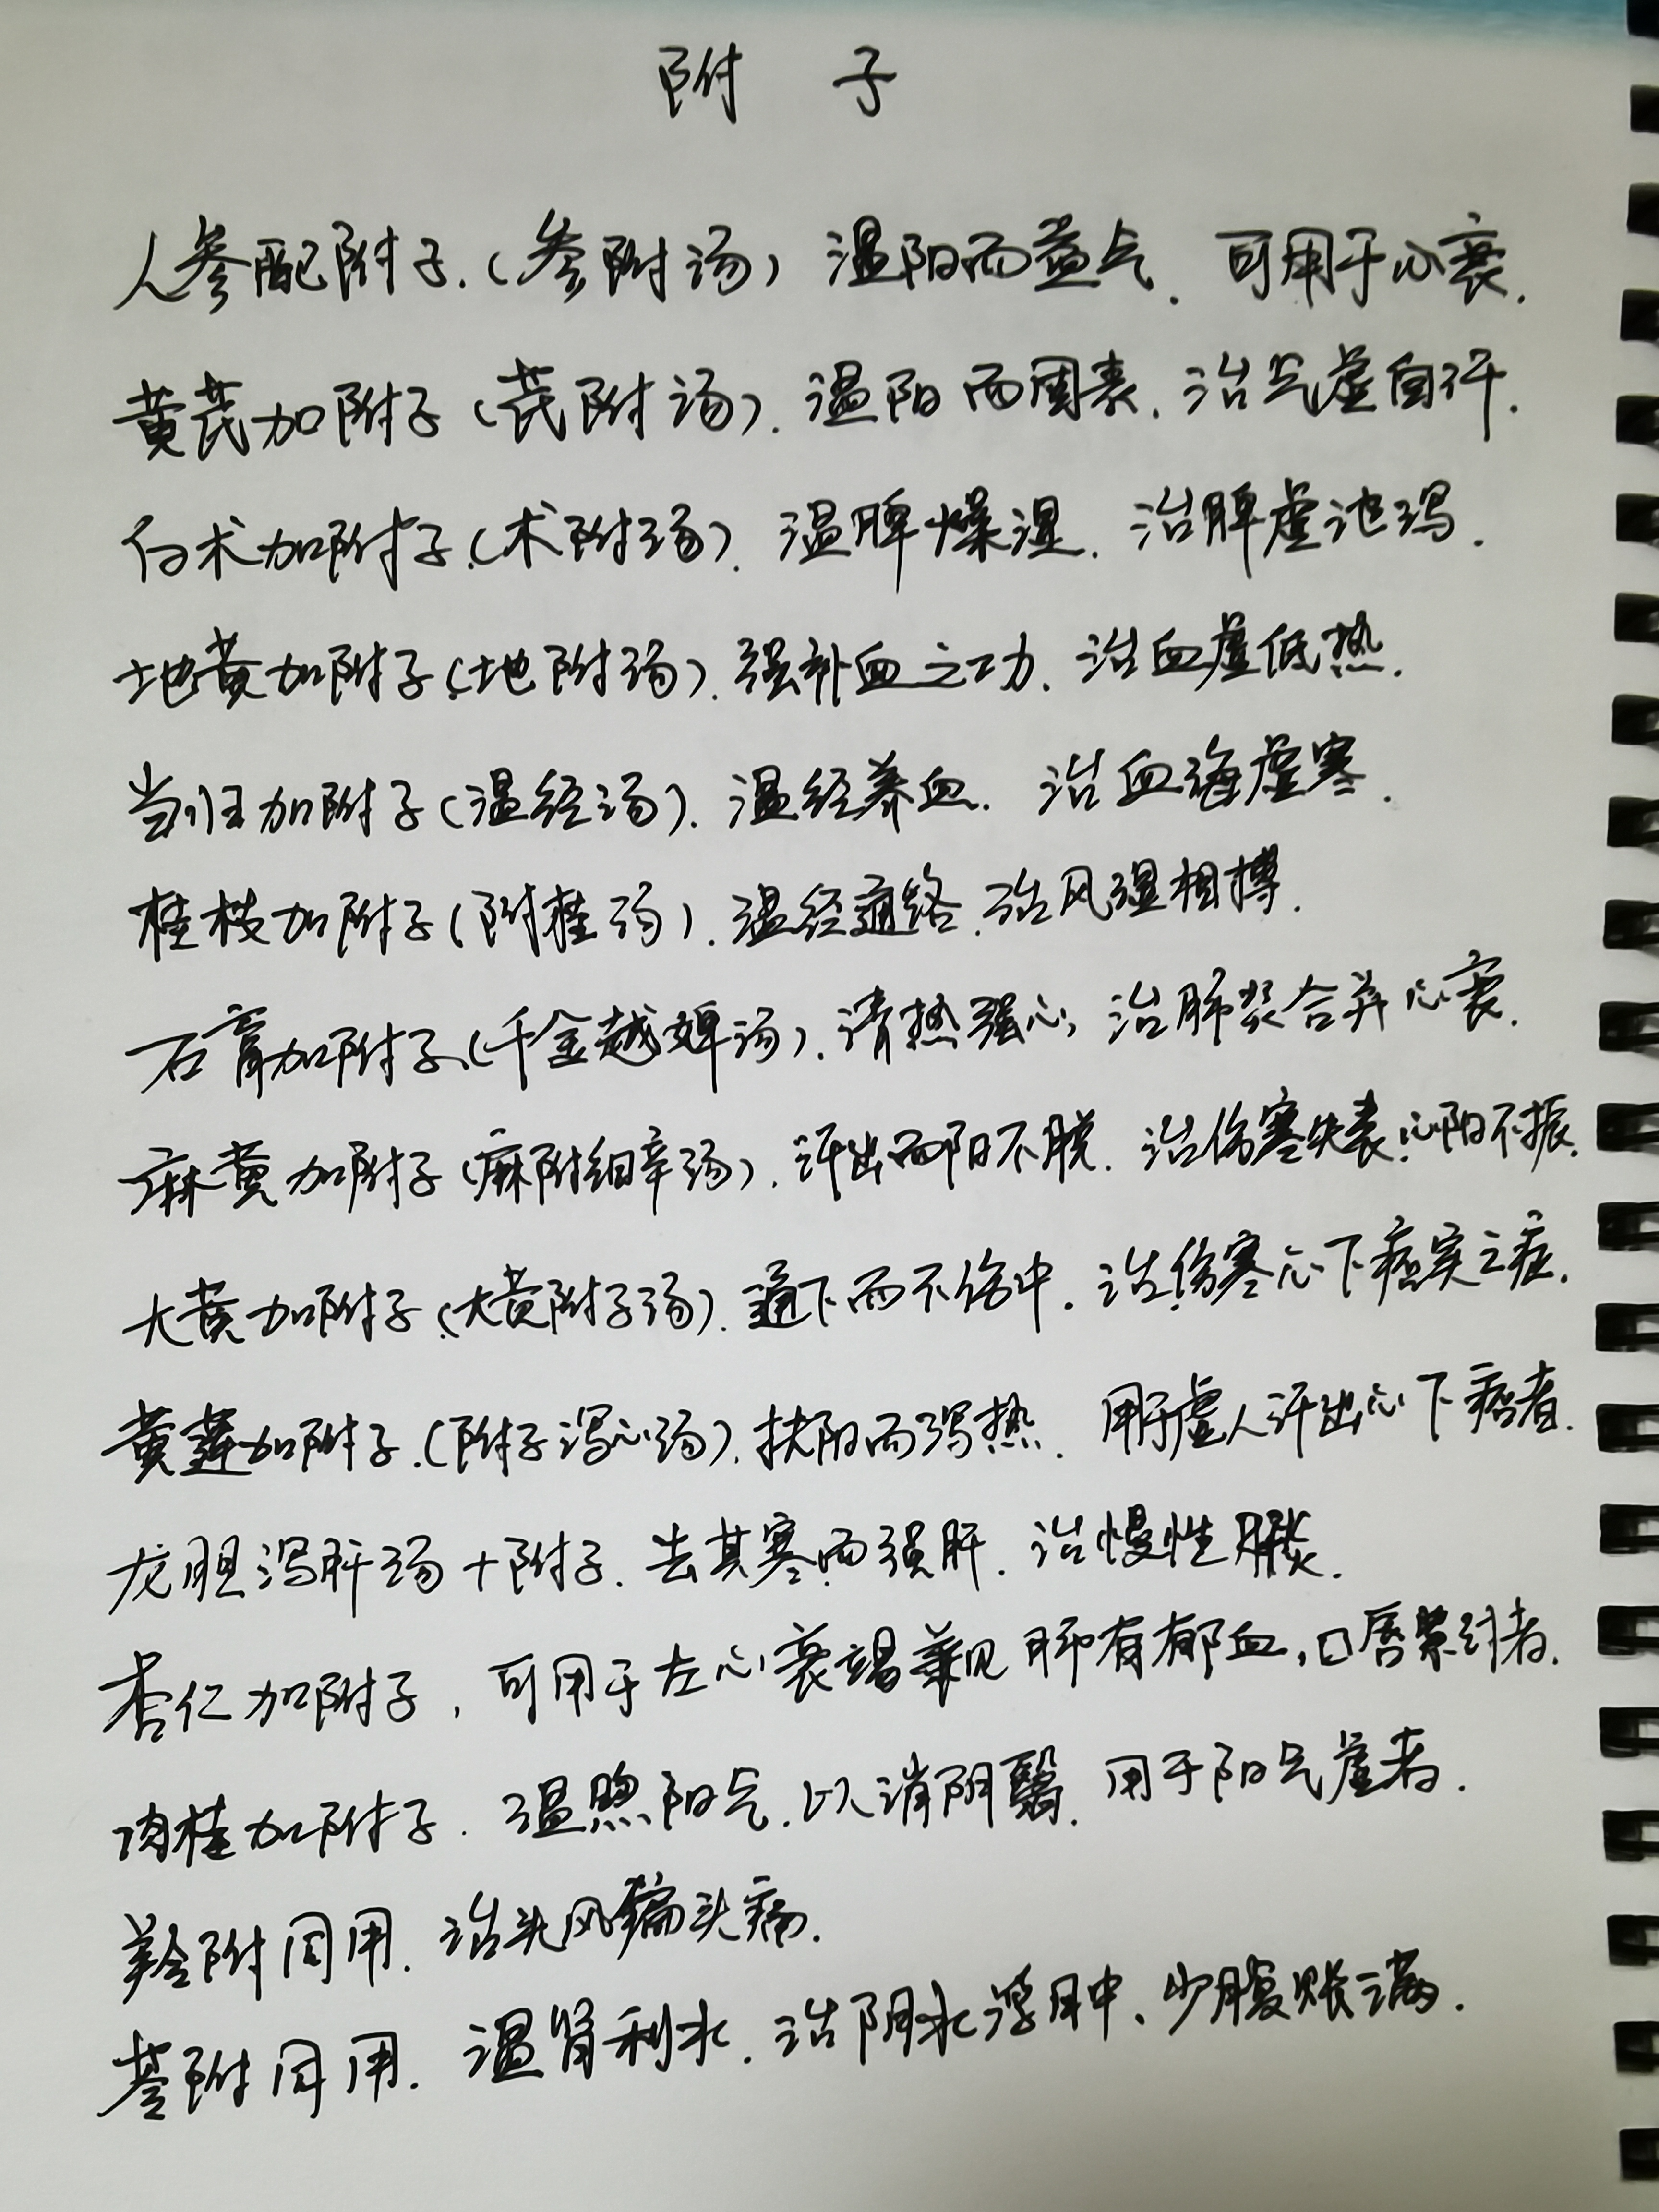 附 子
人参配附子.(参附汤) 温阳而益气. 可用于心衰.
黄芪加附子(芪附汤). 温阳而固表. 治气虚自汗.
白术加附子(术附汤). 温脾燥湿. 治脾虚泄泻.
地黄加附子(地附汤). 强补血之功. 治血虚低热.
当归加附子(温经汤). 温经养血. 治血海虚寒.
桂枝加附子(附桂汤). 温经通络. 治风湿相搏.
石膏加附子(千金越婢汤). 清热强心, 治肺炎合并心衰.
麻黄加附子(麻附细辛汤). 汗出而阳不脱. 治伤寒失表, 心阳不振.
大黄加附子(大黄附子汤). 通下而不伤中. 治伤寒心下痞实之症.
黄连加附子.(附子泻心汤). 扶阳而泻热. 用于虚人汗出心下痞者.
龙胆泻肝汤+附子. 去其寒而强肝. 治慢性肝炎.
杏仁加附子, 可用于左心衰竭兼见肺有郁血, 口唇紫绀者.
肉桂加附子. 温煦阳气. 以消阴翳. 用于阳气虚者.
羚附同用. 治头风偏头痛.
苓附同用. 温肾利水. 治阴水浮肿、少腹胀满.